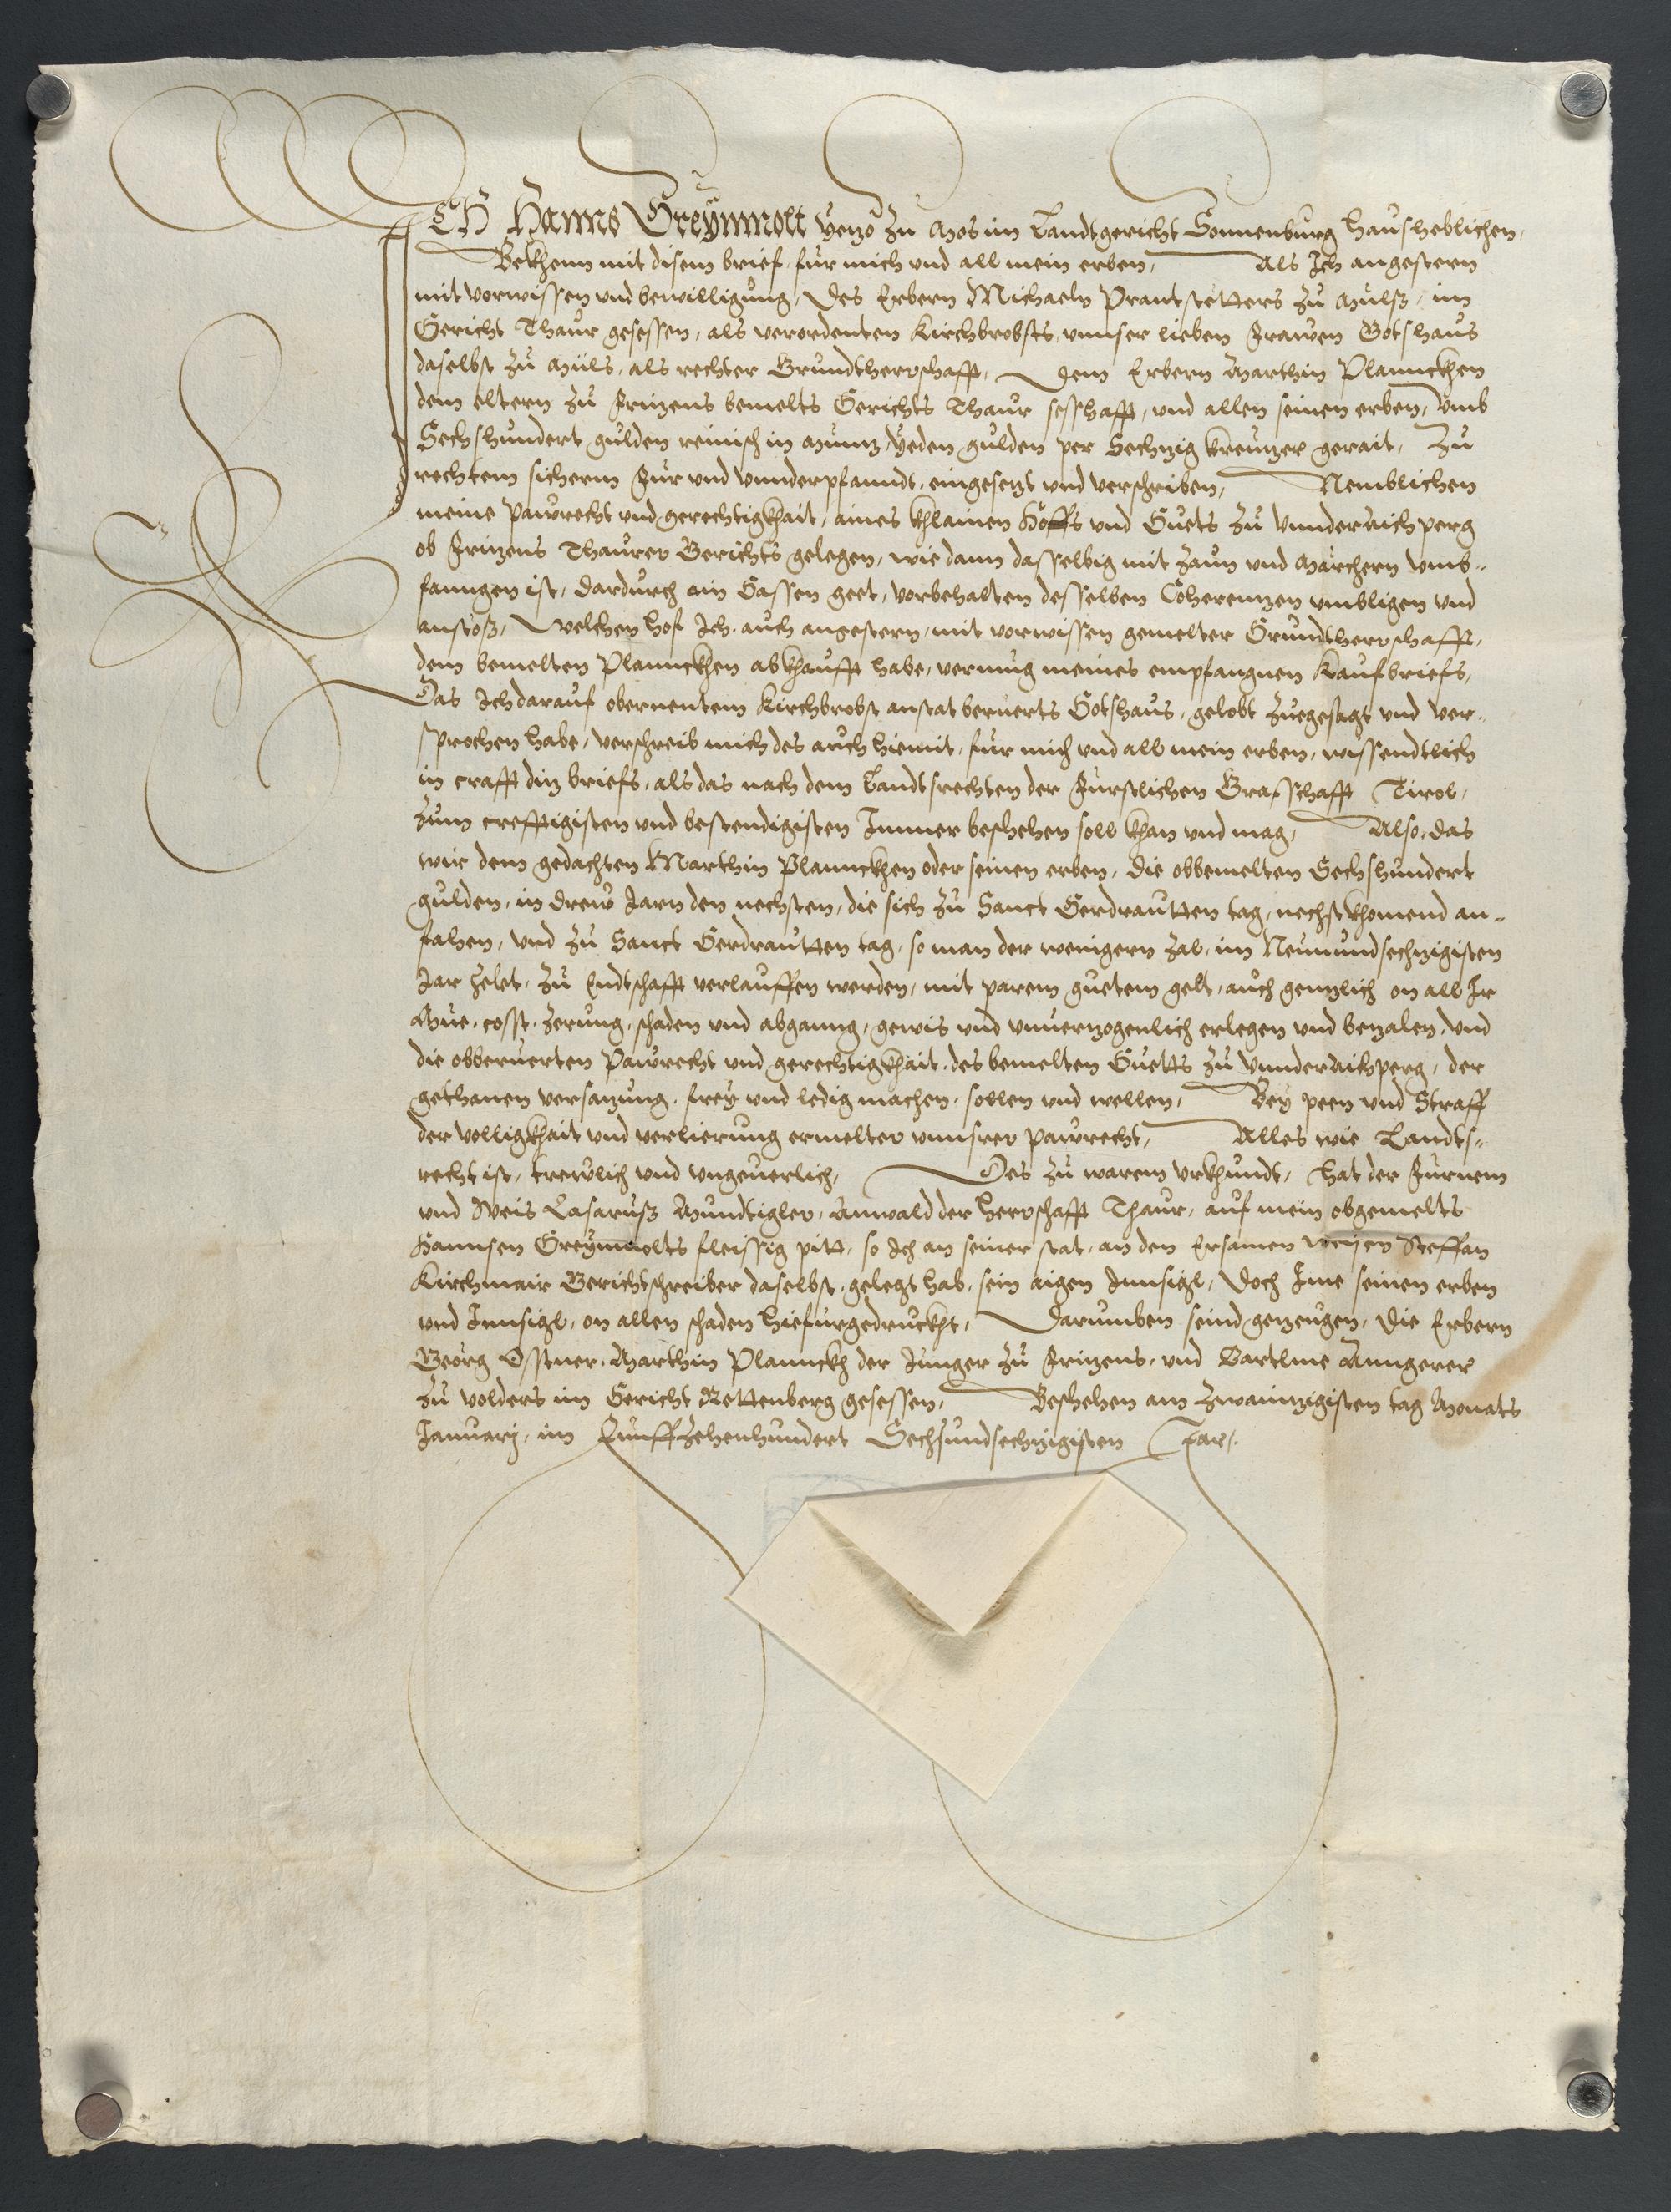 ICH Hanns Greÿmolt yetzo zu Mos im Landtgericht Sonnenburg Hausheblichen,
Bekhenn mit disem brief, für mich und all mein erben, Als Ich angestern
mit vorwissen und bewilligung, des Erbern Michaeln Prantstetters zu Mulß, im
Gericht Thaur gesessen, als verordenten Kirchbrobsts, unnser lieben Frawen Gotshaus
daselbst zu Müls, als rechter Grundtherrschafft, dem Erbern Marthin Plannckhen
dem eltern zu Fritzens bemelts Gerichts Thaur sesshafft, und allen seinen erben, Umb
Sechshundert gulden reinisch in Müntz, yeden gulden per Sechtzig kreutzer gerait, Zu
rechtem sicherm Für und Unnderpfanndt, eingesetzt und verschriben, Nemblichen
meine Pawrecht und gerechtigkhait, aines khlainen Hoffs und Guets zu Unnderaichperg
ob Fritzens Thaurer Gerichts gelegen, wie dann dasselbig mit Zaun und Märchern umb-
fanngen ist, dardurch ain Gassen geet, vorbehalten desselben Coherentzen umbligen und
anstoß, Welchen hof Ich auch angestern, mit vorwissen gemelter Grundtherrschafft,
dem bemelten Planncken abkhaufft habe, vermüg meines empfangnen Kaufbriefs,
Das Ich darauf obernentem Kirchbrobst anstat berüerts Gotshaus, gelobt zuegesagt und ver-
sprochen habe, verschreib mich des auch hiemit, für mich und all mein erben, wissendtlich
in crafft ditz briefs, als das nach dem Landtsrechten der Fürstlichen Grafschafft Tirol,
zum crefftigisten und bestendigisten Immer beschehen soll khan und mag, Also, das
wir dem gedachten Marthin Planncken oder seinen erben, die obbemelten Sechshundert
gulden, in drew Jarn den nechsten, die sich zu Sanct Gerdrautten tag, nechstkhomend an-
fahen, und zu Sanct Gerdrautten tag, so man der wenigern Zal, im Neunundsechtzigisten
Jar zelet, zu Endtschafft verlauffen werden, mit parem guetem gelt, auch gentzlich on all Ir
Müe, cosst, Zerung, schaden und abganng, gewis und unvertzogenlich erlegen und betzalen, und
die obberüerten Pawrecht und gerechtigkhait, des bemelten Guetts zu Unnderaichperg, der
gethanen versatzung, frey und ledig machen, sollen und wellen, Bey peen und Straff
der völligkhait und verlierung ermelter unnserer Pawrecht, Alles wie Landts-
recht ist, trewlich und ungeverlich, Des zu warem Urkhundt, hat der Fürnem
und Weis Lasaruß Mundtigler, Anwald der Herrschafft Thaur, auf mein obgemelts
Hannsen Greÿmolts fleissig pitt, so Ich an seiner stat, an den Ersamen weisen Steffan
Kirchmair Gerichtschreiber daselbst, gelegt hab, sein aigen Innsigl, doch Ime seinen erben
und Innsigl, on allen schaden hiefürgedruckht, Darumben seind getzeugen, die Erbern
Geörg Osstner, Marthin Planncek der Junger zu Fritzens, und Bartlme Anngerer
zu volders im Gericht Rettenberg gesessen, Beschehen am Zwaintzigisten tag Monats
Januarÿ, im Fünffzehenhundert Sechsundsechtzigisten Jar.